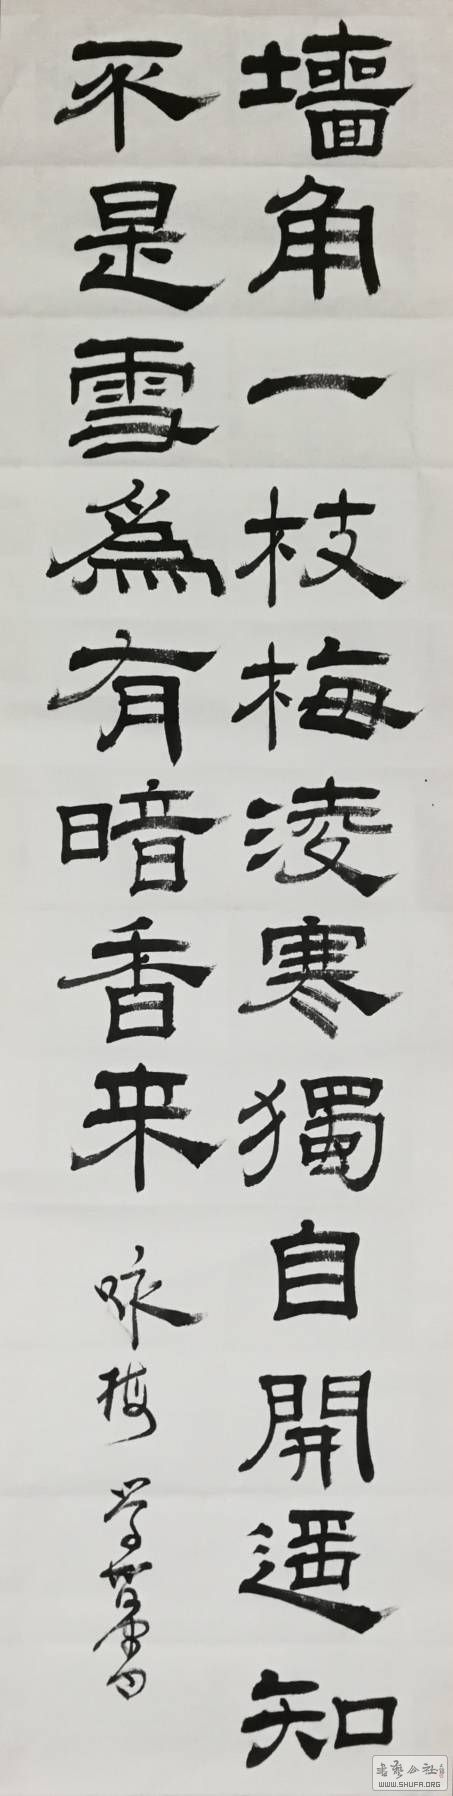 墻角一枝梅凌寒獨自開遥知
不是雪為有暗香来
咏梅
书艺公社
WWW.SHUFA.ORG